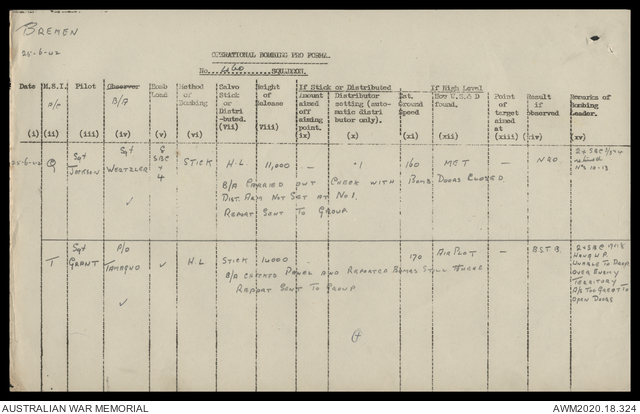 BREMEN
25-6-42
OPERATIONAL BOMBING PRO FORMA.
No. 460 SQUADRON.
Date (i)
M.S.I. A/C (ii)
Pilot (iii)
Observer B/A (iv)
Bomb Load (v)
Method of Bombing (vi)
Salvo Stick or Distri-buted. (Vii)
Height of Release (Viii)
If Stick or Distributed
Amount aimed off aiming point. (ix)
Distributor setting (auto-matic distri butor only). (x)
Est. Ground Speed (xi)
If High Level
How W.S.& D found. (xii)
Point of target aimed at (xiii)
Result if observed (xiv)
Remarks of Bombing Leader. (xv)
25-6-42 Q Sgt JACKSON Sgt WERTZLER 8 SBC + 4 STICK H.L. 11,000 — .1 160 MET — N.R.O.
2 x SBC
N°s 10-13
B/A CARRIED OUT CHECK WITH BOMB DOORS CLOSED
DIST. ARM NOT SET AT NO 1.
REPORT SENT TO GROUP
✓
T Sgt GRANT P/O ✓ H.L STICK 14000 170 AIR PLOT — B.S.T.B.
2 x SBC
HUNG UP.
UNABLE TO DROP
OVER ENEMY
TERRITORY
A/S TOO GREAT TO
OPEN DOORS
B/A PANEL AND REPORTED BOMBS STILL THERE
REPORT SENT TO GROUP
✓
AUSTRALIAN WAR MEMORIAL
AWM2020.18.324